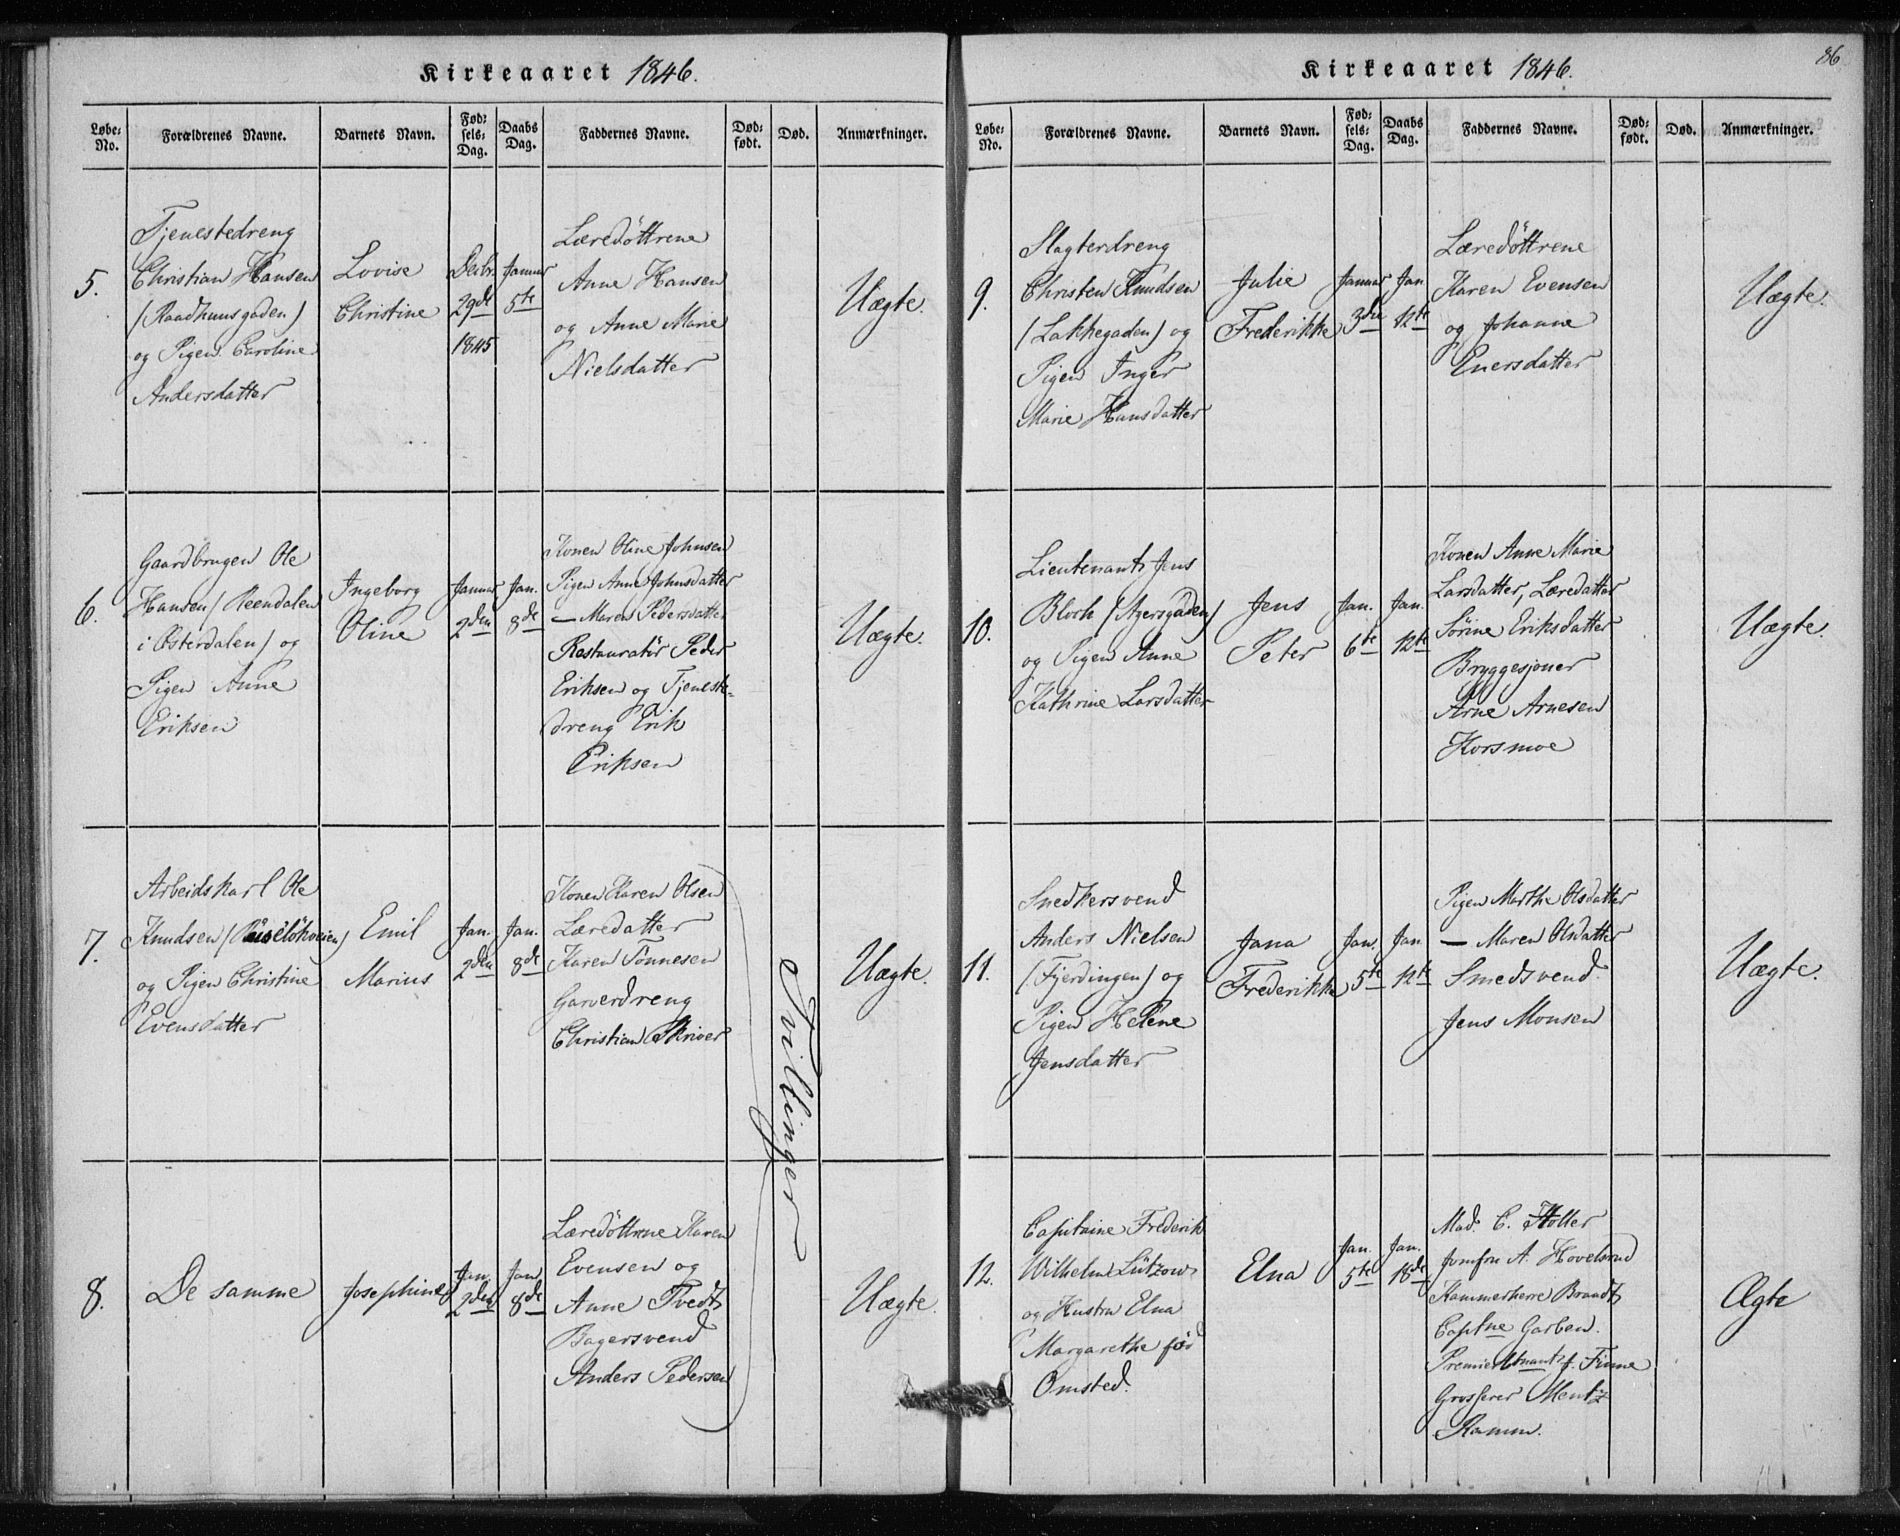 Kirkeaaret 1846.
Løbe-No.
Forældrenes Navne.
Barnets Navn.
Fødsels-Dag.
Daabs Dag.
Faddernes Navne.
Dødfødt.
Død.
Anmærkninger.
5.
Tjenestedreng
Christian Hansen
(Raadhuusgaden)
og Pigen Caroline
Andersdatter
Lovise
Christine
Decbr.
29de
1845
Januar
5te
Læredöttrene
Anne Hansen
og Anne Marie
Nielsdatter
Uægte.
6.
Gaardbrugen Ole
Hansen (Reendalen
i Østerdalen) og
Pigen Anne
Eriksen
Ingeborg
Oline
Januar
2den
Jan.
8de
Konen Oline Johnsen
Pigen Anne Johnsdatter
— Maren Pedersdatter
Restauratör Peder
Eriksen og Tjeneste-
dreng Erik
Eriksen
Uægte.
7.
Arbeidskarl Ole
Knudsen
og Pigen Christine
Evensdatter
Emil
Marius
Jan.
2den
Jan.
8de
Konen Karen Olsen
Læredatter
Karen Tönnesen
Garverdreng
Christian Skriver
Tvillinger
Uægte.
8.
De samme
Josephine
Jan.
2den
Jan.
8de
Læredöttrene Karen
Evensen og
Anne Tvedt
Bagersvend
Anders Pedersen
Uægte.
86
Kirkeaaret 1846.
Løbe-No.
Forældrenes Navne.
Barnets Navn.
Fødsels-Dag.
Daabs Dag.
Faddernes Navne.
Dødfødt.
Død.
Anmærkninger.
9.
Slagterdreng
Christen Knudsen
(Lakkegaden) og
Pigen Inger
Marie Hansdatter
Julie
Frederikke
Januar
3die
Jan.
12te
Læredöttrene
Karen Evensen
og Johanne
Enersdatter
Uægte.
10.
Lieutenant Jens
Bloch (Agersgaden)
og Pigen Anne
Kathrine Larsdatter
Jens
Peter
Jan.
6te
Jan.
12te
Konen Anne Marie
Larsdatter, Læredatter
Sörine Eriksdatter
Bryggesjouer
Arne Arnesen
Korsmoe
Uægte.
11.
Snedkersvend
Anders Nielsen
(Fjerdingen) og
Pigen Helene
Jensdatter
Jana
Frederikke
Jan.
5te
Jan.
12te
Pigen Marthe Olsdatter
— Maren Olsdatter
Smedsvend
Jens Monsen
Uægte.
12.
Capitaine Frederik
Wilhelm Lützow
og Hustru Elna
Margarethe föd
Omsted.
Elna
Jan.
5te
Jan.
18de
Mad. C. Holter
Jomfru A. Hovelsrud
Kammerherre Brandt
Captne Garben.
Finne
Grosserer Mentz
Ramm.
Ægte